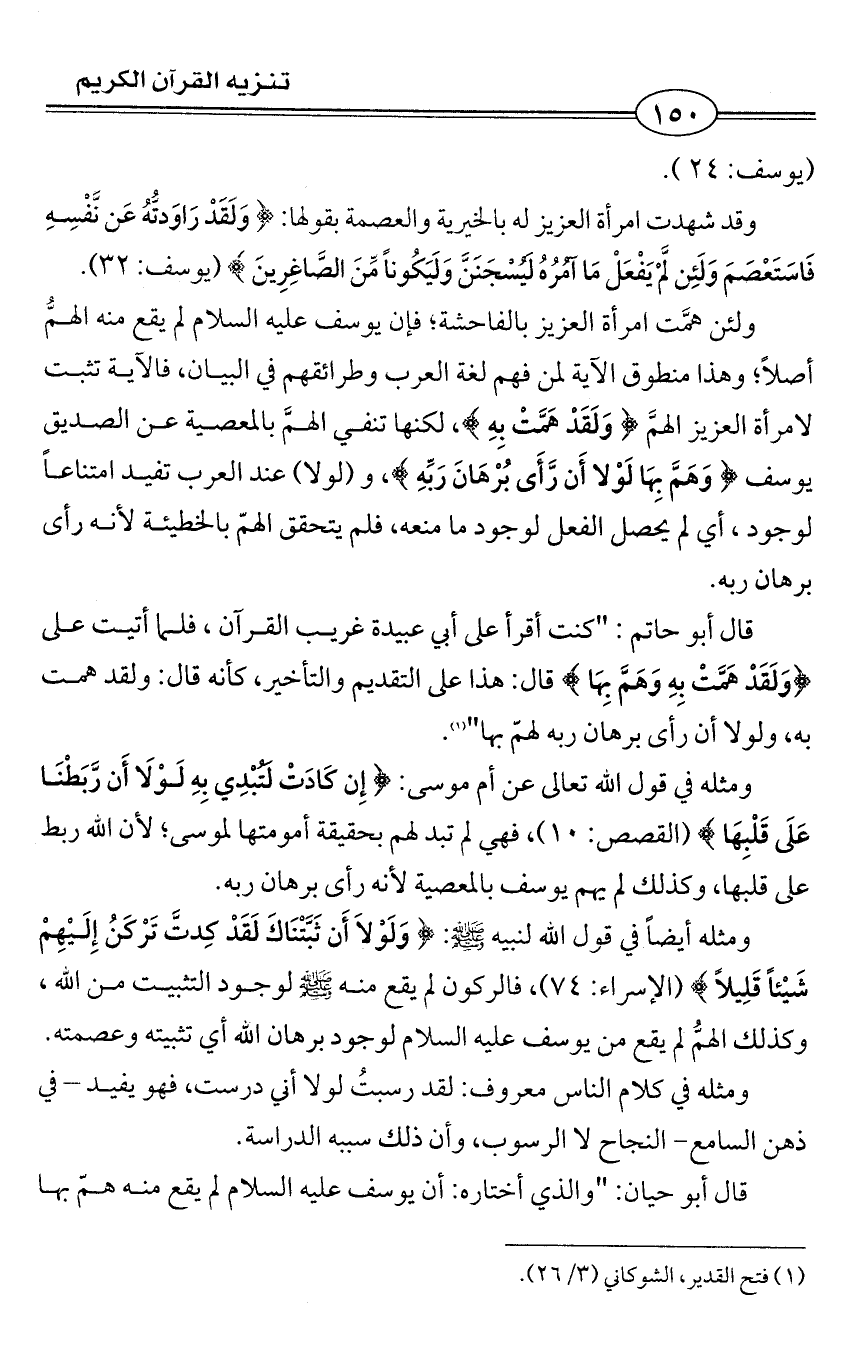 تنزيه القرآن الكريم
١٥٠
(يوسف: ٢٤ ).
وقد شهدت امرأة العزيز له بالخيرية والعصمة بقولها: ﴿ وَلَقَدْ رَاوَدتُّهُ عَن نَّفْسِهِ
فَاسَتَعْصَمَ وَلَئِن لَّمْ يَفْعَلْ مَا آمُرُهُ لَيُسْجَنَنَّ وَلَيَكُوناً مِّنَ الصَّاغِرِينَ ﴾ (يوسف: ٣٢).
ولئن همَّت امرأة العزيز بالفاحشة؛ فإن يوسف عليه السلام لم يقع منه الهمُّ
أصلاً؛ وهذا منطوق الآية لمن فهم لغة العرب وطرائقهم في البيان، فالآية تثبت
لامرأة العزيز الهمَّ ﴿ وَلَقَدْ هَمَّتْ بِهِ ﴾، لكنها تنفي الهمَّ بالمعصية عن الصديق
يوسف ﴿ وَهَمَّ بِهَا لَوْلا أَن رَّأَى بُرْهَانَ رَبِّهِ ﴾، و (لولا) عند العرب تفيد امتناعاً
لوجود ، أي لم يحصل الفعل لوجود ما منعه، فلم يتحقق الهمّ بالخطيئة لأنه رأى
برهان ربه.
قال أبو حاتم : "كنت أقرأ على أبي عبيدة غريب القرآن ، فلما أتيت على
﴿وَلَقَدْ هَمَّتْ بِهِ وَهَمَّ بِهَا ﴾ قال: هذا على التقديم والتأخير، كأنه قال: ولقد همت
به، ولولا أن رأى برهان ربه لهمّ بها"(١).
ومثله في قول الله تعالى عن أم موسى: ﴿ إِن كَادَتْ لَتُبْدِي بِهِ لَوْلَا أَن رَّبَطْنَا
عَلَى قَلْبِهَا ﴾ (القصص: ١٠)، فهي لم تبد لهم بحقيقة أمومتها لموسى؛ لأن الله ربط
على قلبها، وكذلك لم يهم يوسف بالمعصية لأنه رأى برهان ربه.
ومثله أيضاً في قول الله لنبيه ﷺ: ﴿ وَلَوْلاَ أَن ثَبَّتْنَاكَ لَقَدْ كِدتَّ تَرْكَنُ إِلَيْهِمْ
شَيْئاً قَلِيلاً ﴾ (الإسراء: ٧٤)، فالركون لم يقع منه ﷺ لوجود التثبيت من الله ،
وكذلك الهمُّ لم يقع من يوسف عليه السلام لوجود برهان الله أي تثبيته وعصمته.
ومثله في كلام الناس معروف: لقد رسبتُ لولا أني درست، فهو يفيد – في
ذهن السامع– النجاح لا الرسوب، وأن ذلك سببه الدراسة.
قال أبو حيان: "والذي أختاره: أن يوسف عليه السلام لم يقع منه همّ بها
(١) فتح القدير، الشوكاني (٣/ ٢٦).